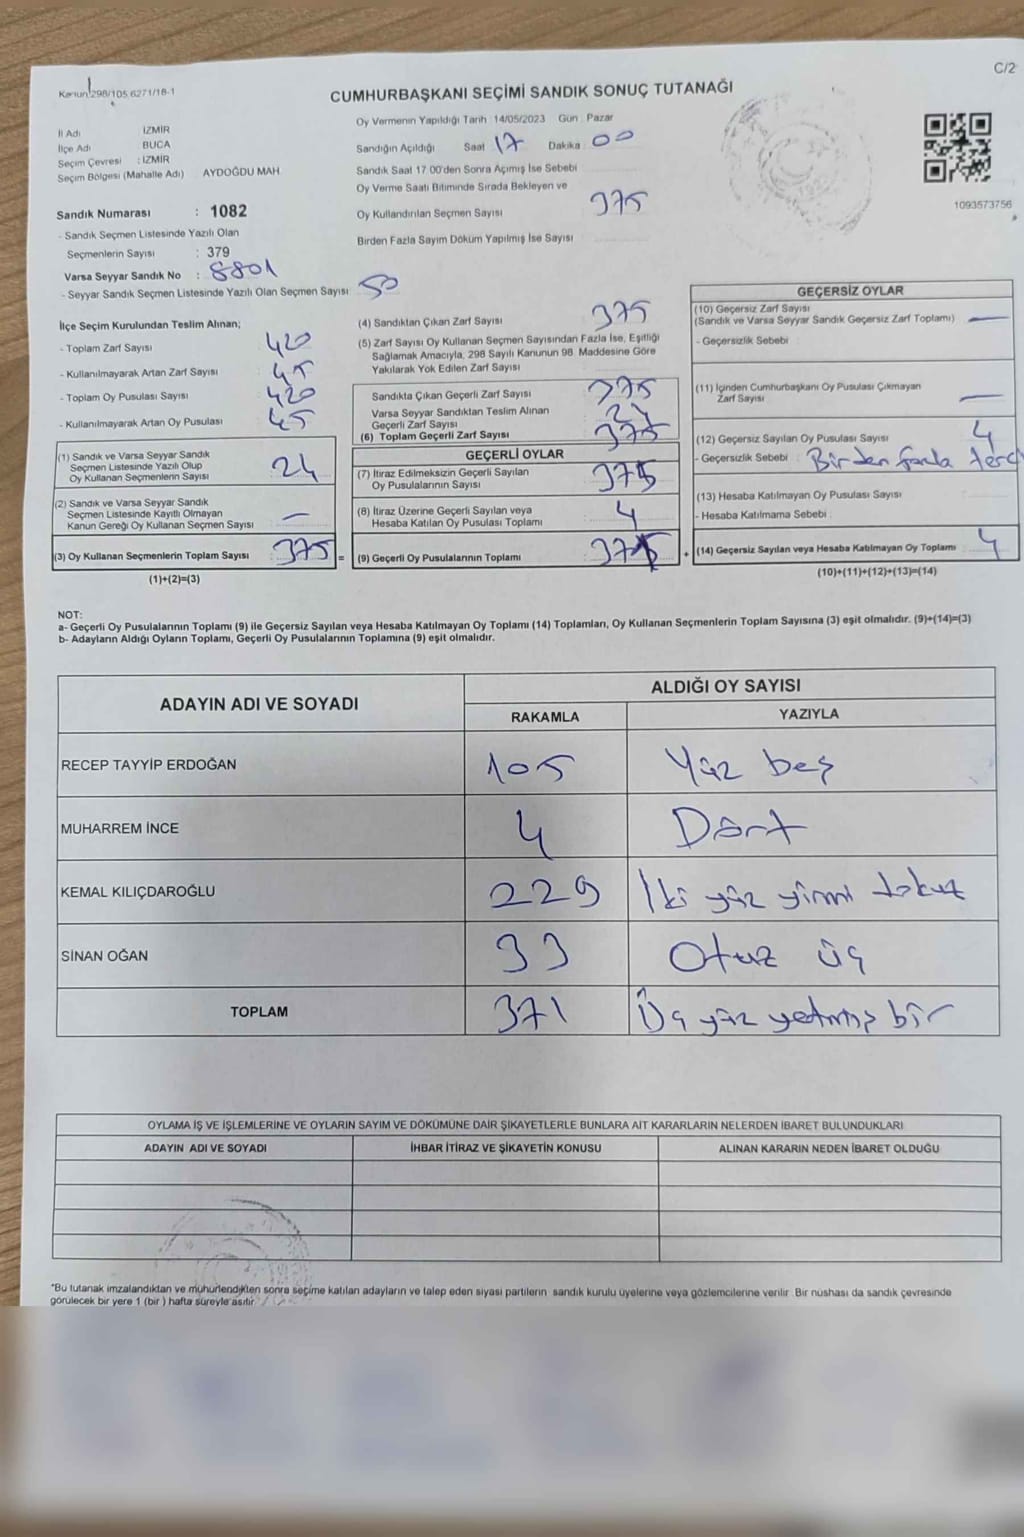 C/2
Kanun 298/105,6271/18-1
CUMHURBAŞKANI SEÇİMİ SANDIK SONUÇ TUTANAĞI
İl Adı : İZMİR
İlçe Adı : BUCA
Seçim Çevresi : İZMİR
Seçim Bölgesi (Mahalle Adı) : AYDOĞDU MAH.
Sandık Numarası : 1082
- Sandık Seçmen Listesinde Yazılı Olan
Seçmenlerin Sayısı : 379
Varsa Seyyar Sandık No : 8801
- Seyyar Sandık Seçmen Listesinde Yazılı Olan Seçmen Sayısı: 50
Oy Vermenin Yapıldığı Tarih : 14/05/2023 Gün : Pazar
Sandığın Açıldığı Saat 17 Dakika 00
Sandık Saat 17.00'den Sonra Açımış İse Sebebi
Oy Verme Saati Bitiminde Sırada Bekleyen ve
Oy Kullandırılan Seçmen Sayısı 375
Birden Fazla Sayım Döküm Yapılmış İse Sayısı
1093573756
İlçe Seçim Kurulundan Teslim Alınan;
- Toplam Zarf Sayısı 420
- Kullanılmayarak Artan Zarf Sayısı 45
- Toplam Oy Pusulası Sayısı 420
- Kullanılmayarak Artan Oy Pusulası 45
(1) Sandık ve Varsa Seyyar Sandık
Seçmen Listesinde Yazılı Olup
Oy Kullanan Seçmenlerin Sayısı 24
(2) Sandık ve Varsa Seyyar Sandık
Seçmen Listesinde Kayıtlı Olmayan
Kanun Gereği Oy Kullanan Seçmen Sayısı : —
(3) Oy Kullanan Seçmenlerin Toplam Sayısı : 375 =
(1)+(2)=(3)
(4) Sandıktan Çıkan Zarf Sayısı 375
(5) Zarf Sayısı Oy Kullanan Seçmen Sayısından Fazla İse, Eşitliği
Sağlamak Amacıyla, 298 Sayılı Kanunun 98. Maddesine Göre
Yakılarak Yok Edilen Zarf Sayısı
Sandıkta Çıkan Geçerli Zarf Sayısı 375
Varsa Seyyar Sandıktan Teslim Alınan
Geçerli Zarf Sayısı 24
(6) Toplam Geçerli Zarf Sayısı 375
GEÇERLİ OYLAR
(7) İtiraz Edilmeksizin Geçerli Sayılan
Oy Pusulalarının Sayısı 375
(8) İtiraz Üzerine Geçerli Sayılan veya
Hesaba Katılan Oy Pusulası Toplamı 4
(9) Geçerli Oy Pusulalarının Toplamı +
GEÇERSİZ OYLAR
(10) Geçersiz Zarf Sayısı
(Sandık ve Varsa Seyyar Sandık Geçersiz Zarf Toplamı) : —
- Geçersizlik Sebebi :
(11) İçinden Cumhurbaşkanı Oy Pusulası Çıkmayan
Zarf Sayısı —
(12) Geçersiz Sayılan Oy Pusulası Sayısı 4
- Geçersizlik Sebebi : Birden fazla terc
(13) Hesaba Katılmayan Oy Pusulası Sayısı
- Hesaba Katılmama Sebebi :
(14) Geçersiz Sayılan veya Hesaba Katılmayan Oy Toplamı : 4
(10)+(11)+(12)+(13)=(14)
NOT:
a- Geçerli Oy Pusulalarının Toplamı (9) ile Geçersiz Sayılan veya Hesaba Katılmayan Oy Toplamı (14) Toplamları, Oy Kullanan Seçmenlerin Toplam Sayısına (3) eşit olmalıdır. (9)+(14)=(3)
b- Adayların Aldığı Oyların Toplamı, Geçerli Oy Pusulalarının Toplamına (9) eşit olmalıdır.
ADAYIN ADI VE SOYADI ALDIĞI OY SAYISI
RAKAMLA YAZIYLA
RECEP TAYYİP ERDOĞAN 105 Yüz beş
MUHARREM İNCE 4 Dört
KEMAL KILIÇDAROĞLU 229 İki yüz yirmi dokuz
SİNAN OĞAN 33 Otuz üç
TOPLAM 371 Üç yüz yetmiş bir
OYLAMA İŞ VE İŞLEMLERİNE VE OYLARIN SAYIM VE DÖKÜMÜNE DAİR ŞİKAYETLERLE BUNLARA AİT KARARLARIN NELERDEN İBARET BULUNDUKLARI
ADAYIN ADI VE SOYADI İHBAR İTİRAZ VE ŞİKAYETİN KONUSU ALINAN KARARIN NEDEN İBARET OLDUĞU
*Bu tutanak imzalandıktan ve mühürlendikten sonra seçime katılan adayların ve talep eden siyasi partilerin sandık kurulu üyelerine veya gözlemcilerine verilir. Bir nüshası da sandık çevresinde
görülecek bir yere 1 (bir) hafta süreyle asılır.